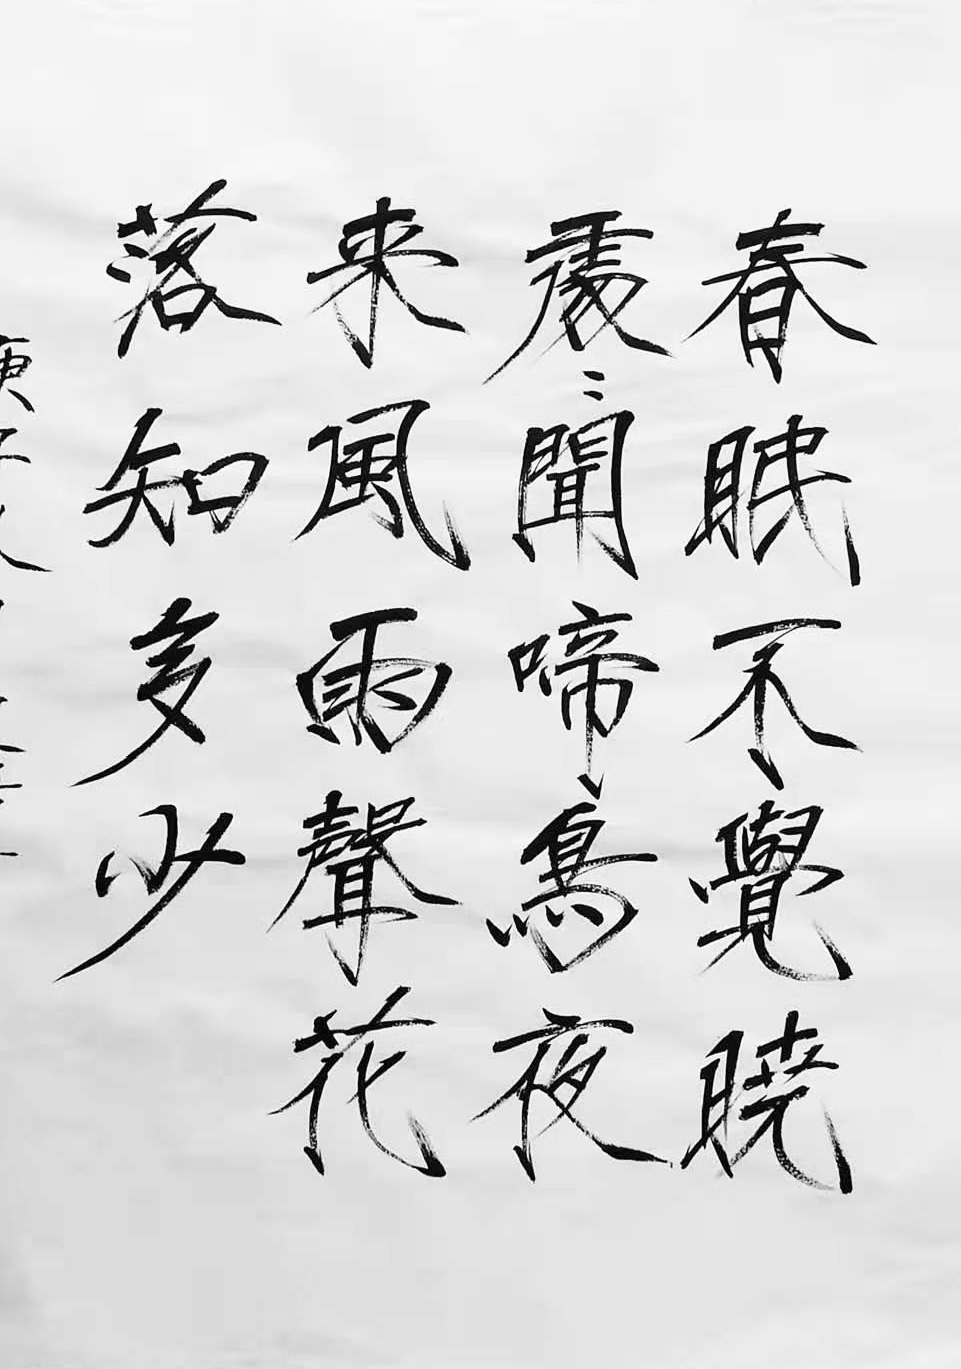 春眠不覺曉
處〻聞啼鳥夜
来風雨聲花
落知多少